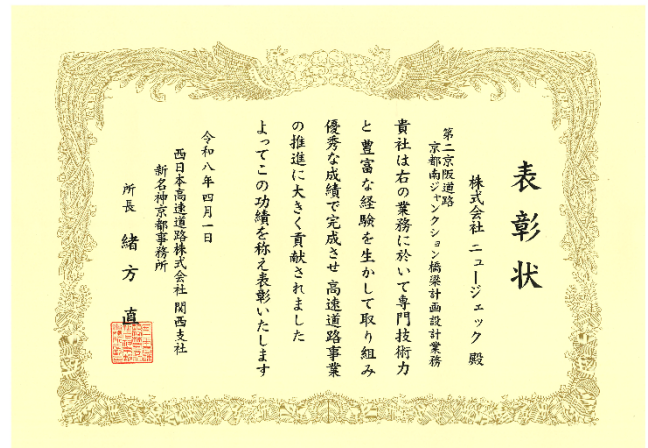 表彰状
株式会社 ニュージェック 殿
第二京阪道路
京都南ジャンクション橋梁計画設計業務
貴社は右の業務に於いて専門技術力
と豊富な経験を生かして取り組み
優秀な成績で完成させ 高速道路事業
の推進に大きく貢献されました
よってこの功績を称え表彰いたします
令和八年四月一日
西日本高速道路株式会社 関西支社
新名神京都事務所
所長 緒方 直